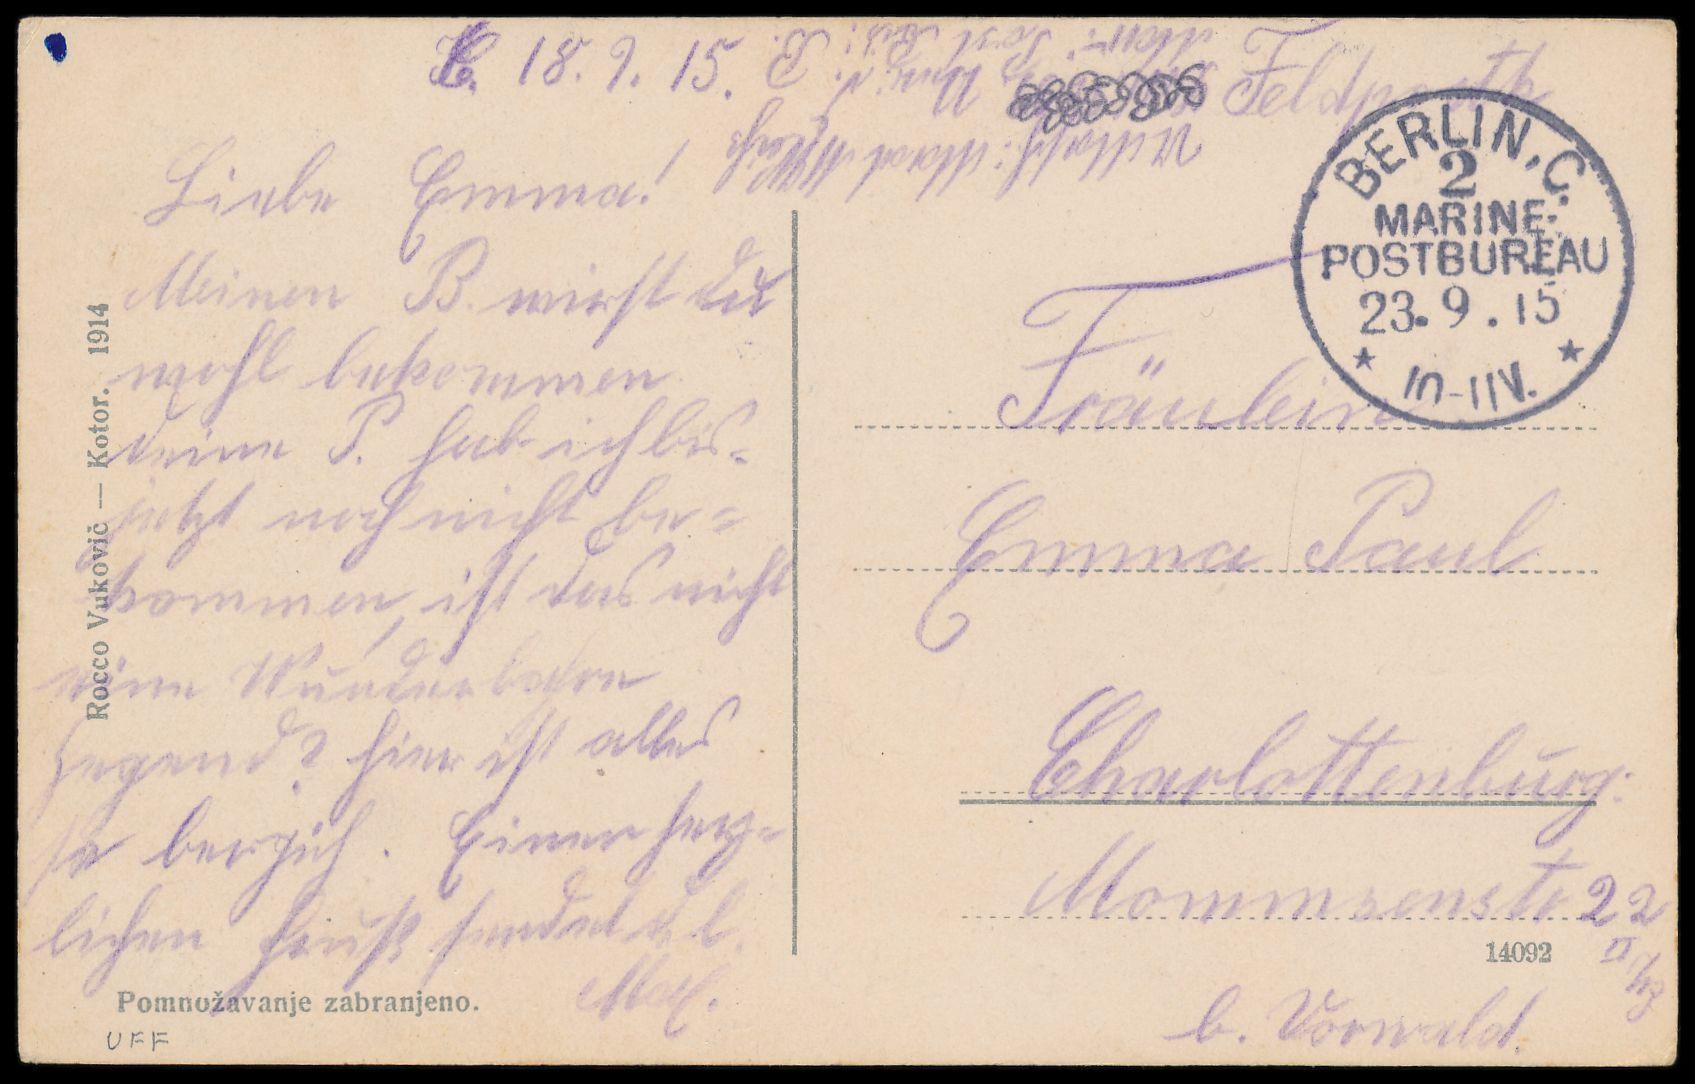 C. 18.9.15.
Feldpost
Liebe Emma!
Meinen B. wirst du
wohl bekommen
deine P. hab ich bis-
jetzt noch nicht be=
kommen, ist das nicht
eine Wunderbare
Gegend? hier ist alles
so bergich. Einen herz=
lichen Gruß sendet d. l.
Max.
Rocco Vukovič — Kotor. 1914
Pomnožavanje zabranjeno.
UFF
BERLIN, C.
2
MARINE-
POSTBUREAU
23.9.15
10-11V.
Fräulein
Emma Paul
Charlottenburg.
Mommsenstr 22
14092
b. Vorwald.